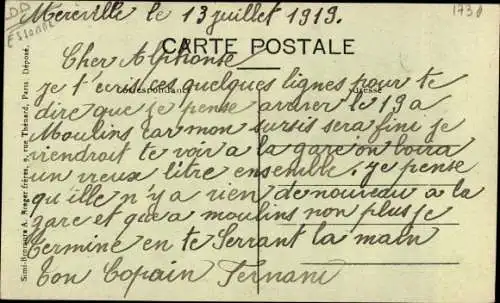 DD
ESSONNE
1738
Méréville le 13 juillet 1919.
CARTE POSTALE
Correspondance
Adresse
Simi-Bromure A. Breger frères, 9, rue Thénard, Paris. Déposé.
Cher Alphonse
je t'ecris ces quelques lignes pour te
dire que je pense arriver le 19 a
Moulins car mon sursis sera fini je
viendrait te voir a la gare on boira
un vieux litre ensemble. je pense
qu'ille n'y a rien de nouveau a la
gare et que a moulins non plus je
termine en te Serrant la main
ton Copain Fernand